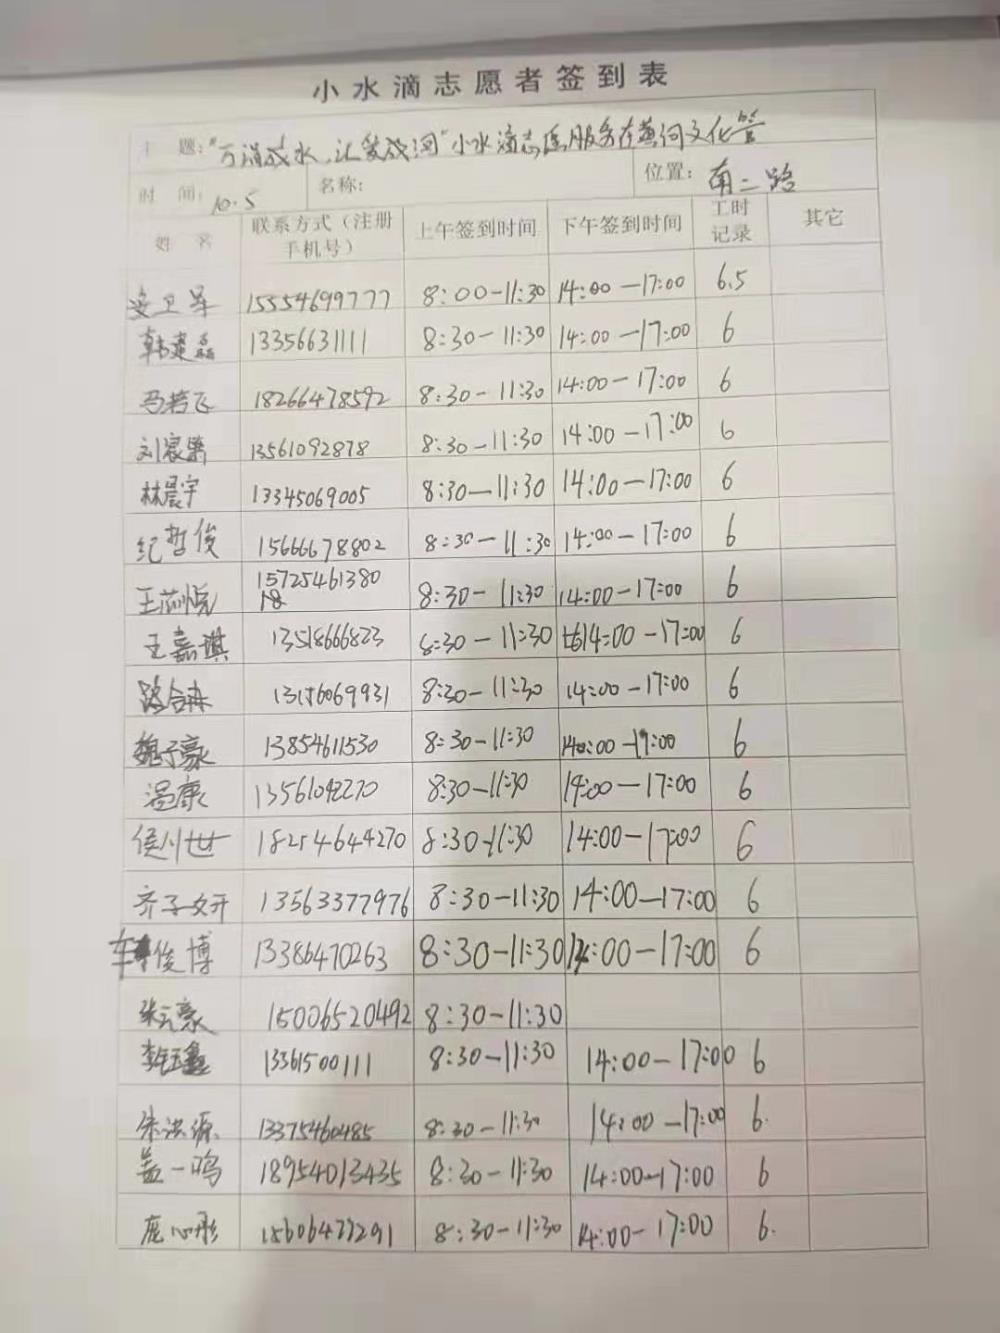 小水滴志愿者签到表
主 题: "万涓成水、汇爱成河"小水滴志愿服务在黄河文化馆
时 间: 10.5 名称: 位置: 南二路
姓 名 联系方式（注册手机号） 上午签到时间 下午签到时间 工时记录 其它
安卫军 15554699777 8:00-11:30 14:00-17:00 6.5
韩建磊 13356631111 8:30-11:30 14:00-17:00 6
马若飞 18266478592 8:30-11:30 14:00-17:00 6
刘家 13561092878 8:30-11:30 14:00-17:00 6
林晨宇 13345069005 8:30-11:30 14:00-17:00 6
纪哲俊 15666678802 8:30-11:30 14:00-17:00 6
王芯悦 15725461380 8:30-11:30 14:00-17:00 6
王嘉琪 13518666823 8:30-11:30 14:00-17:00 6
路合冉 8:30-11:30 14:00-17:00 6
魏子豪 13854611530 8:30-11:30 14:00-17:00 6
温康 13561092270 8:30-11:30 14:00-17:00 6
侯川世 18254644270 8:30-11:30 14:00-17:00 6
齐子妍 13563377976 8:30-11:30 14:00-17:00 6
车俊博 13386470263 8:30-11:30 14:00-17:00 6
张元豪 15006520492 8:30-11:30
李钰鑫 13361500111 8:30-11:30 14:00-17:00 6
朱洪源 13375460485 8:30-11:30 14:00-17:00 6.
盖一鸣 18954013435 8:30-11:30 14:00-17:00 6
庞心彤 15606477291 8:30-11:30 14:00-17:00 6.